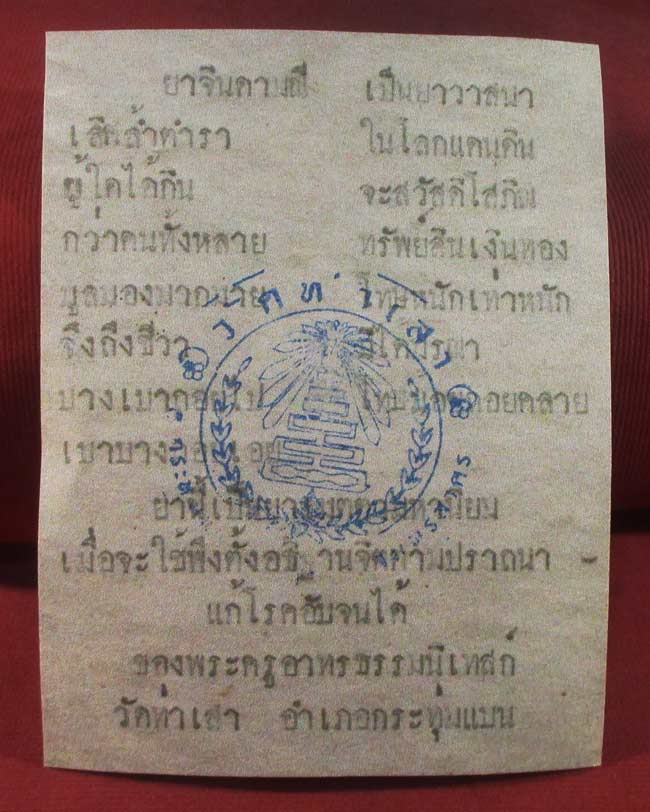 ยาจินดามณี เป็นยาวาสนา
เลิศล้ำตำรา ในโลกแดนดิน
ผู้ใดได้กิน จะสวัสดิโสภิณ
กว่าคนทั้งหลาย ทรัพย์สินเงินทอง
มูลมองมากมาย โทษหนักเท่าหนัก
จึงถึงชีวา
บางเบา โทษ ถอยคลาย
เบาบาง
ยานี้เป็นยา
เมื่อจะใช้พึงตั้งอธิษฐานจิตตามปราถนา -
แก้โรคอับจนได้
ของพระครูอาทรธรรมนิเทสก์
วัดท่าเสา อำเภอกระทุ่มแบน
วัดท่าเสา